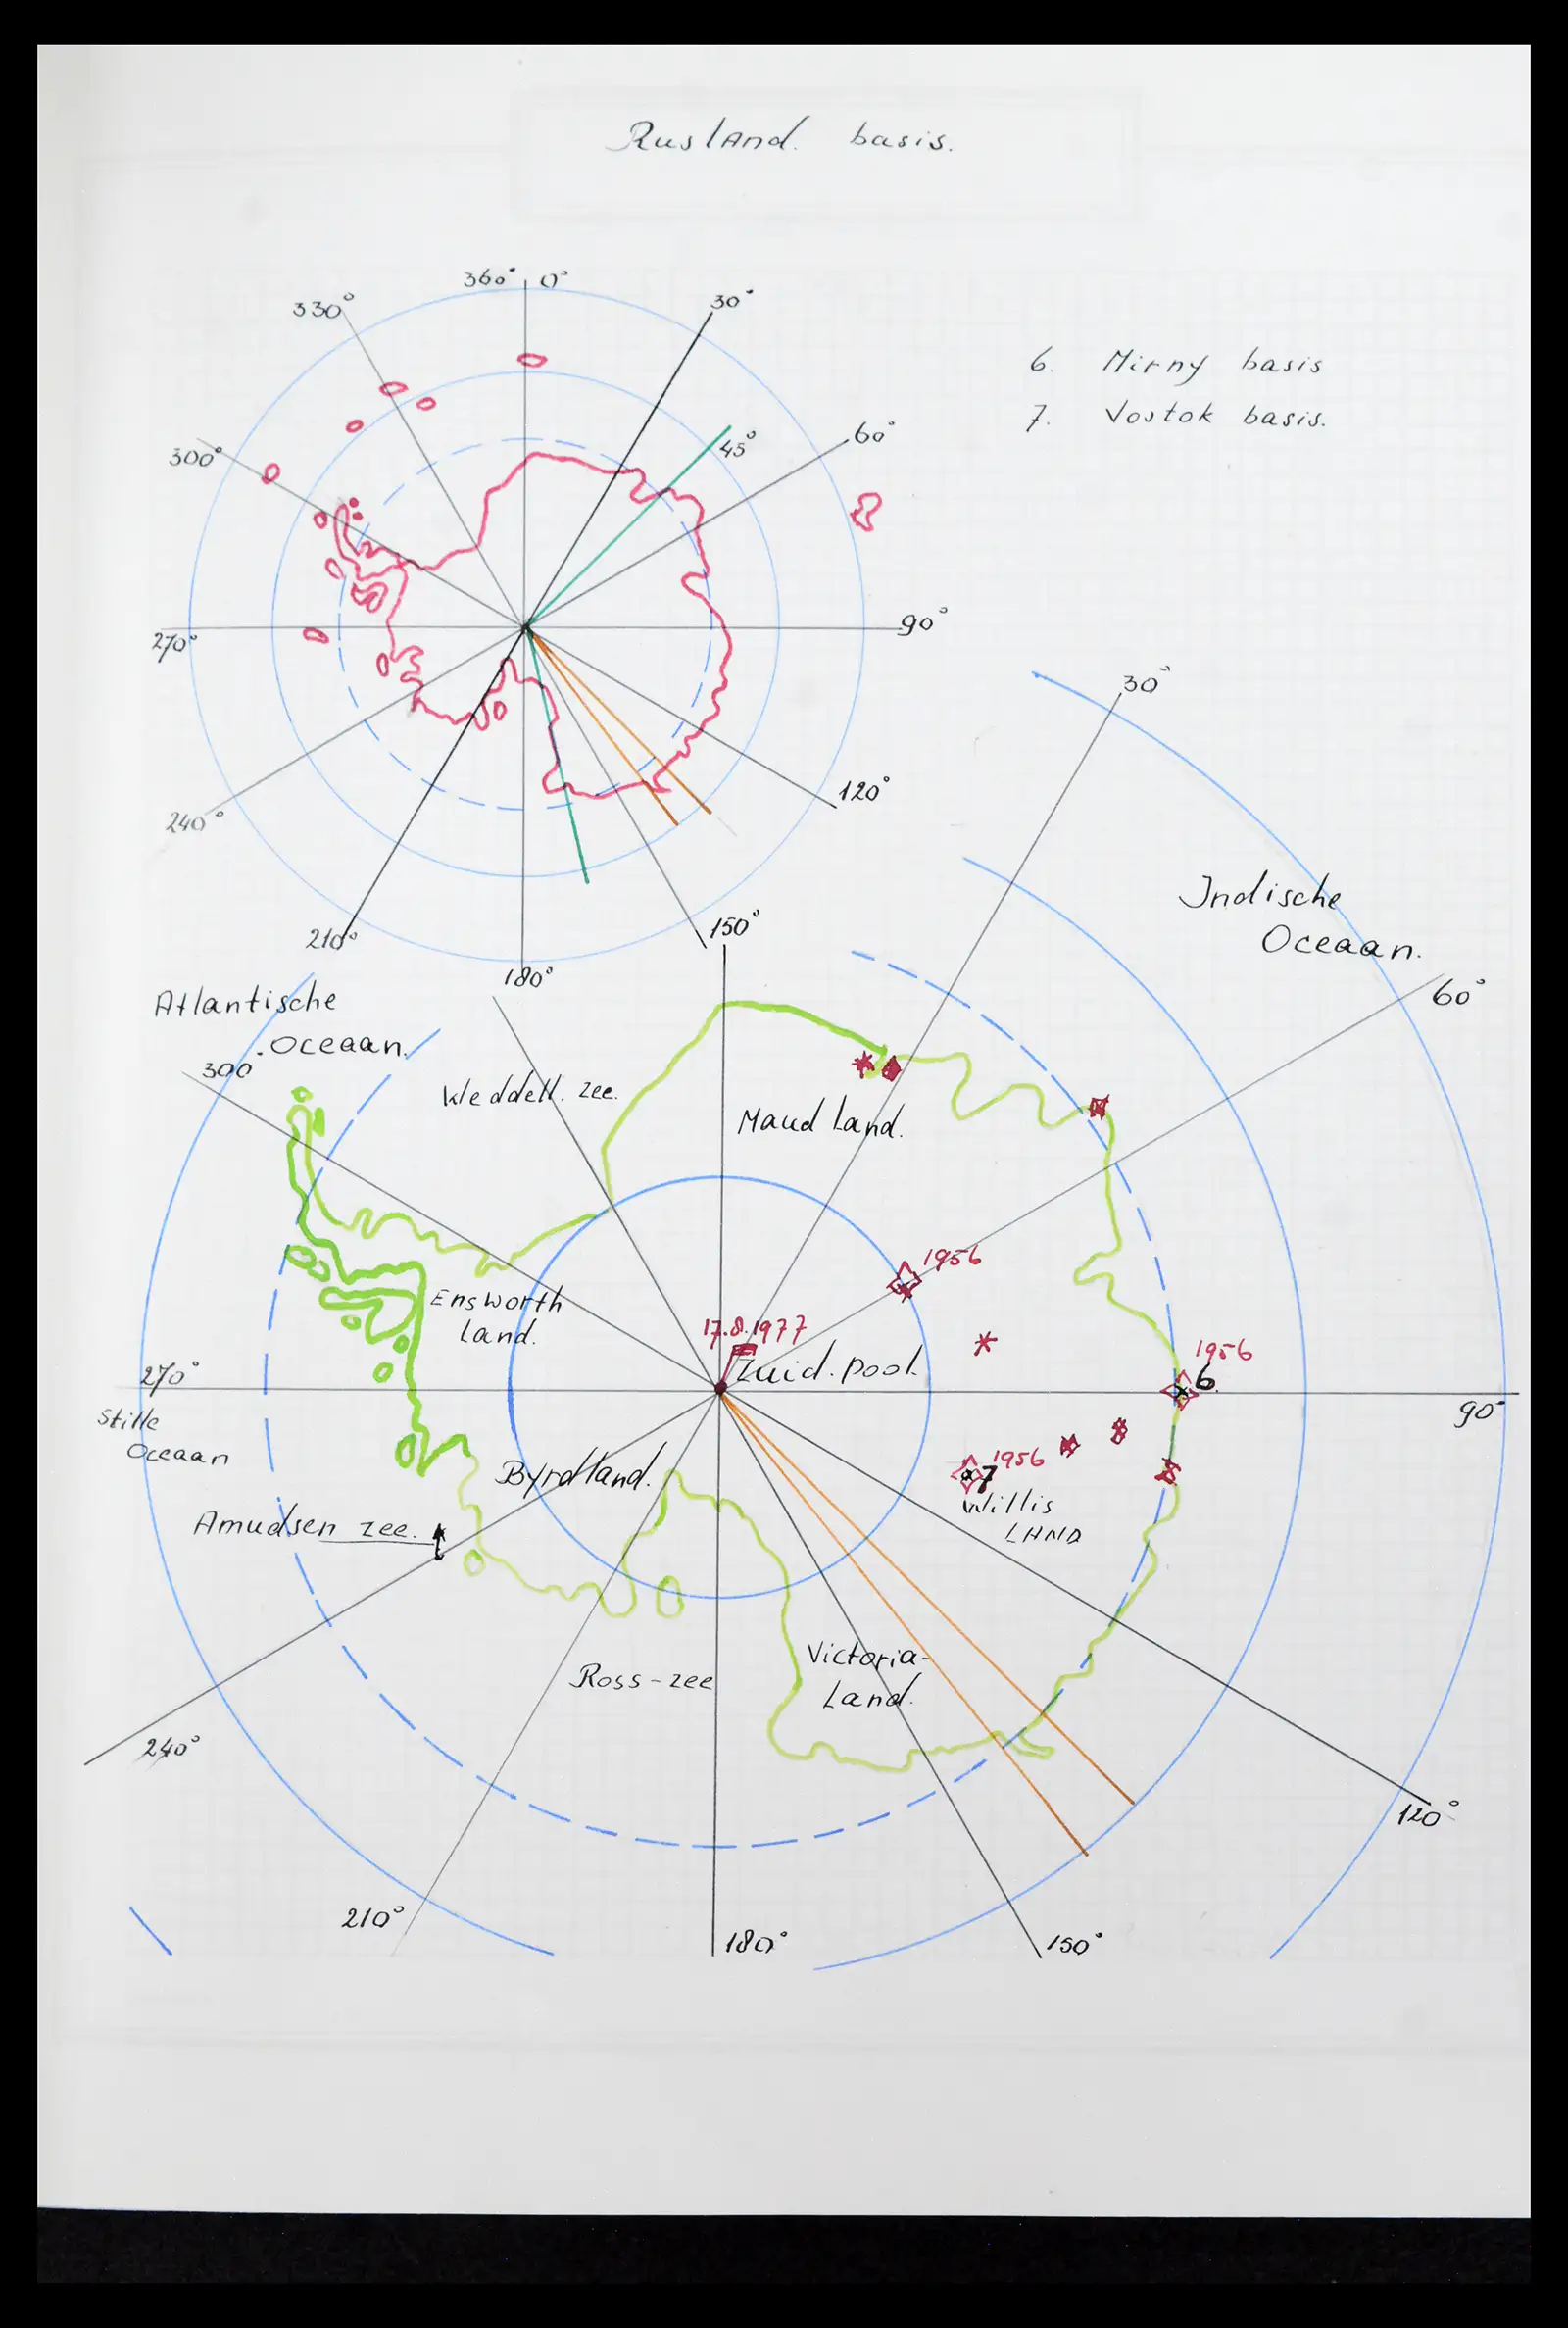 Rusland. basis.
360° 0°
330°
30°
6. Mirny basis
7. Vostok basis.
45°
60°
300°
90°
270°
30°
120°
240°
Indische
Oceaan.
150°
210°
180°
60°
Atlantische
Oceaan.
300
Weddell. zee.
Maud land.
1956
Ensworth
land.
17.8.1977
Zuid. pool.
1956
6
270°
90°
Stille
Oceaan
1956
7
Byrdland.
Willis
LAND
Amudsen zee.
Victoria-
Land.
Ross-zee
240°
120°
210°
180°
150°